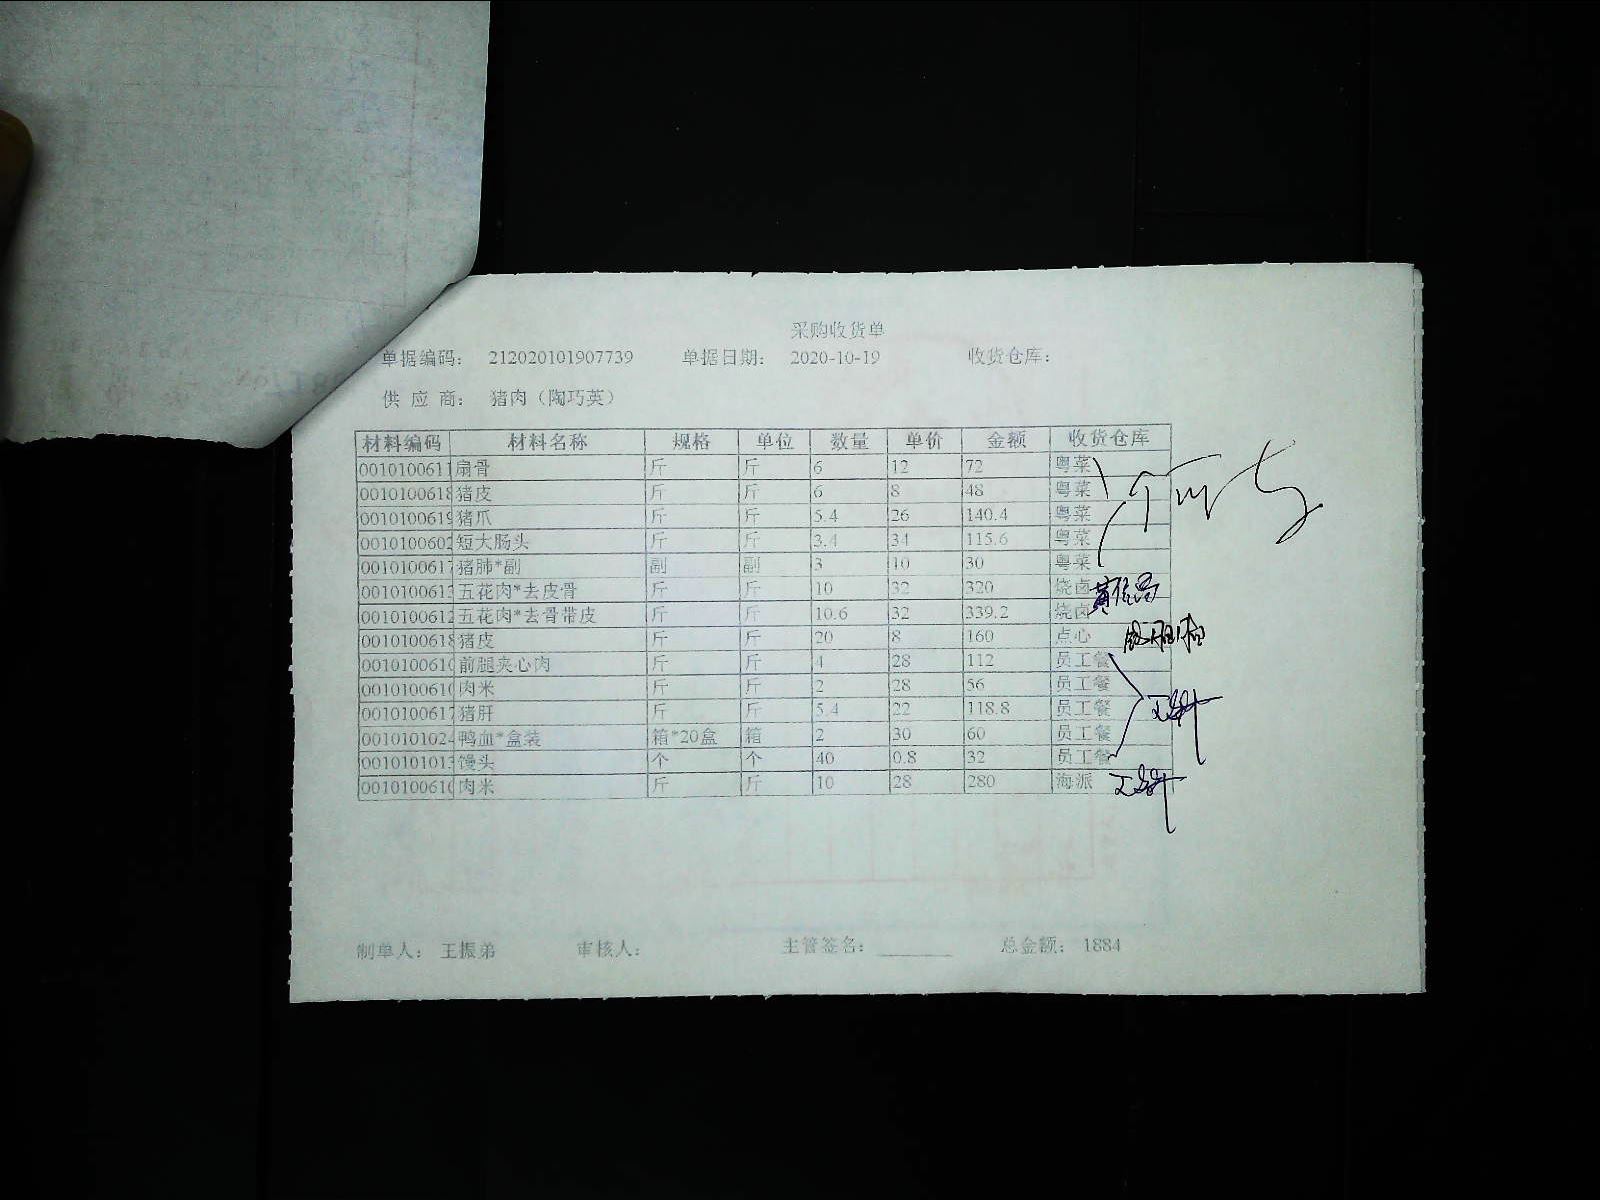 采购收货单
单据编码： 212020101907739 单据日期： 2020-10-19 收货仓库：
供 应 商： 猪肉（陶巧英）
材料编码 材料名称 规格 单位 数量 单价 金额 收货仓库
0010100611 扇骨 斤 斤 6 12 72 粤菜
0010100618 猪皮 斤 斤 6 8 48 粤菜
0010100619 猪爪 斤 斤 5.4 26 140.4 粤菜
0010100602 短大肠头 斤 斤 3.4 34 115.6 粤菜
0010100617 猪肺*副 副 副 3 10 30 粤菜
0010100613 五花肉*去皮骨 斤 斤 10 32 320 烧卤
0010100612 五花肉*去骨带皮 斤 斤 10.6 32 339.2 烧卤
0010100618 猪皮 斤 斤 20 8 160 点心
0010100610 前腿夹心肉 斤 斤 4 28 112 员工餐
0010100610 肉米 斤 斤 2 28 56 员工餐
0010100617 猪肝 斤 斤 5.4 22 118.8 员工餐
0010101024 鸭血*盒装 箱*20盒 箱 2 30 60 员工餐
0010101013 馒头 个 个 40 0.8 32 员工餐
0010100610 肉米 斤 斤 10 28 280 海派
制单人： 王振弟 审核人： 主管签名： 总金额： 1884